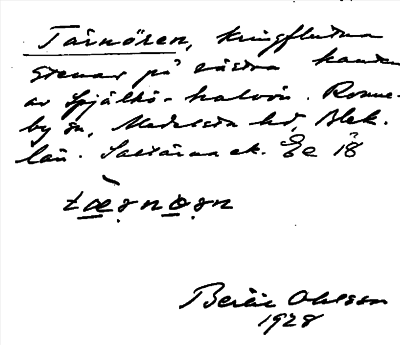 Tärnören, kringflutna
stenar på västra kanten
av Spjälkö-halvön. Ronne-
by sn, Medelsta hd, Blek.
län. ek. Ec 18
tæ̀rnørn
Ohlsson
1928